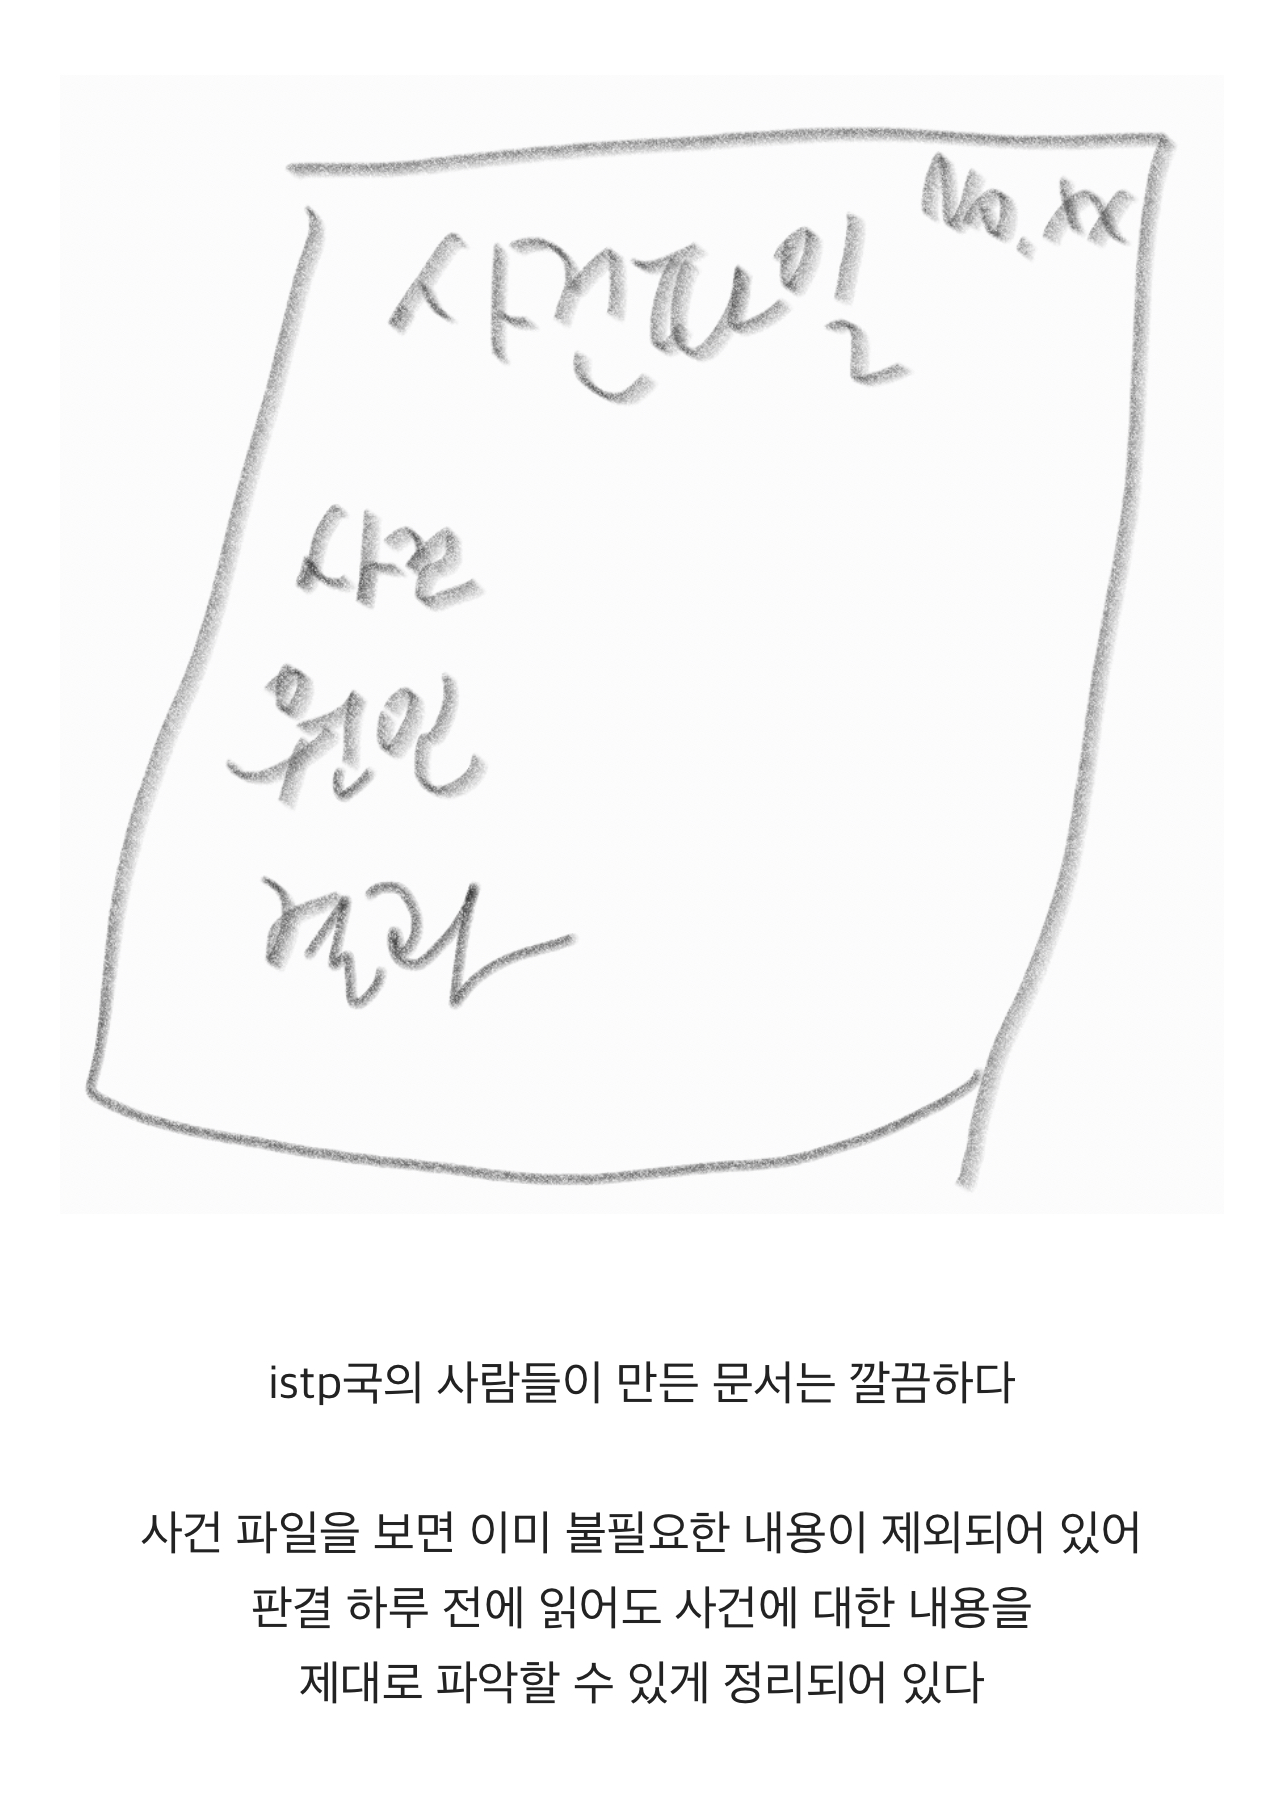 No.xx
사건파일
사건
원인
결과
istp국의 사람들이 만든 문서는 깔끔하다
사건 파일을 보면 이미 불필요한 내용이 제외되어 있어
판결 하루 전에 읽어도 사건에 대한 내용을
제대로 파악할 수 있게 정리되어 있다